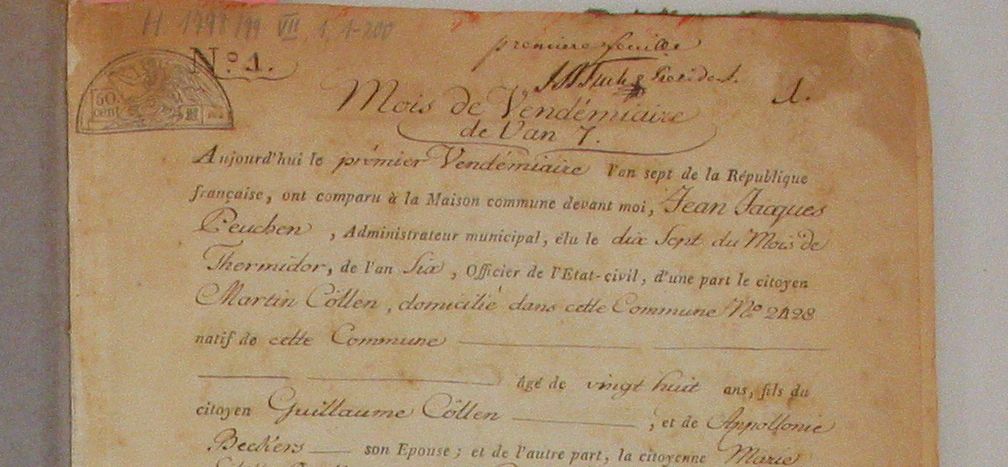 H 1798/99 VII, 1, 1-200
premiere feuille
No. 1.
President.
1.
50 cent
Mois de Vendémiaire
de l'an 7.
Aujourd'hui le prémier Vendémiaire l'an sept de la République
française, ont comparu à la Maison commune devant moi, Jean Jacques
Peuchen, Administrateur municipal, élu le dix Sept du Mois de
Thermidor, de l'an Six, Officier de l'Etat-civil, d'une part le citoyen
Martin Cöllen, domicilié dans cette Commune No. 2428
natif de cette Commune
âgé de vingt huit ans, fils du
citoyen Guillaume Cöllen ; et de Appollonie
Beckers son Epouse ; et de l'autre part, la citoyenne Marie